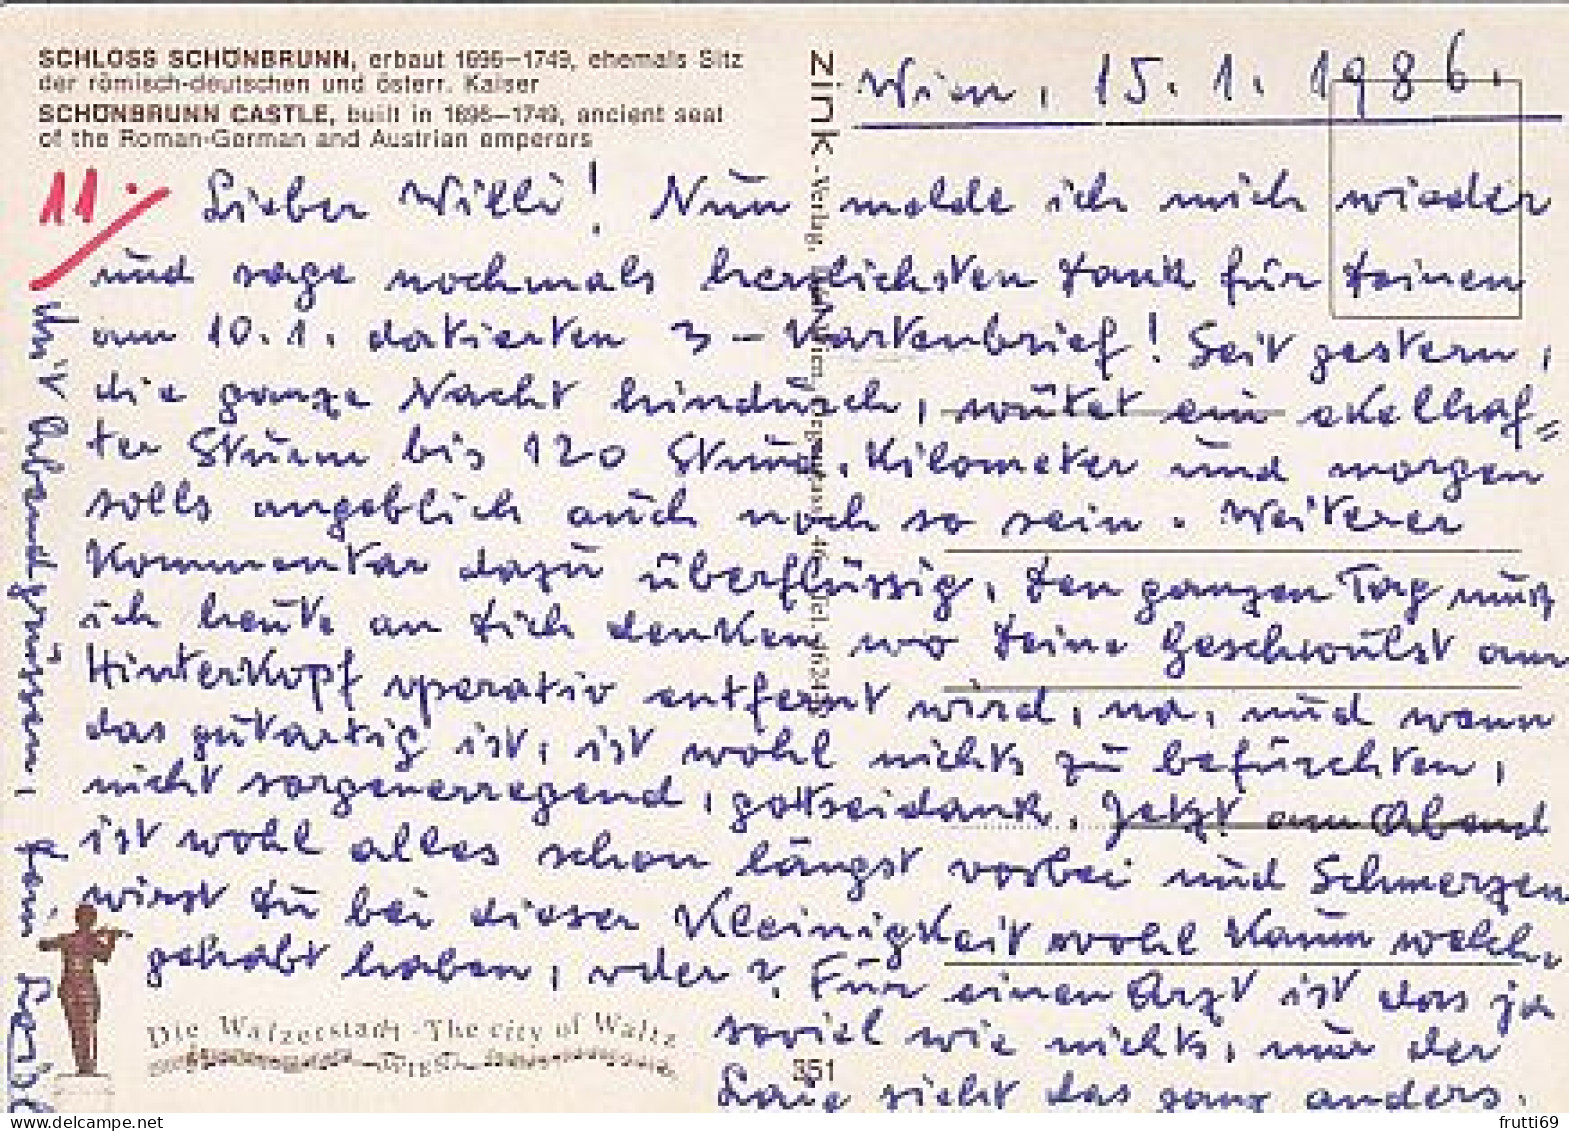 SCHLOSS SCHÖNBRUNN, erbaut 1696–1749, ehemals Sitz
der römisch-deutschen und österr. Kaiser
SCHÖNBRUNN CASTLE, built in 1696–1749, ancient seat
of the Roman-German and Austrian emperors
Wien, 15.1.1986.
11.
Lieber Willi! Nun melde ich mich wieder
und sage nochmals herzlichsten Dank für Deinen
am 10.1. datierten 3-Kartenbrief! Seit gestern,
die ganze Nacht hindurch, wütet ein ekelhaf-
ter Sturm bis 120 Stund. Kilometer und morgen
solls angeblich auch noch so sein. Weiterer
Kommentar dazu überflüssig. Den ganzen Tag muß
ich heute an Dich denken wo Deine Geschwulst am
Hinterkopf operativ entfernt wird, na, und wenn
das gutartig ist, ist wohl nichts zu befürchten,
nicht sorgenerregend, gottseidank. Jetzt am Abend
ist wohl alles schon längst vorbei und Schmerzen
wirst Du bei dieser Kleinigkeit wohl kaum welche
gehabt haben, oder? Für einen Arzt ist das ja
soviel wie nichts, nur der
Laie sieht das ganz anders.
Mit Abendgrüssen, Dein
zink - Verlag,
Die Walzerstadt - The city of Waltz
WIEN
351
frutti69
www.delcampe.net